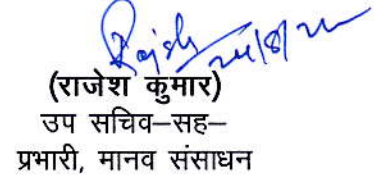 Rajesh
(राजेश कुमार)
उप सचिव–सह–
प्रभारी, मानव संसाधन